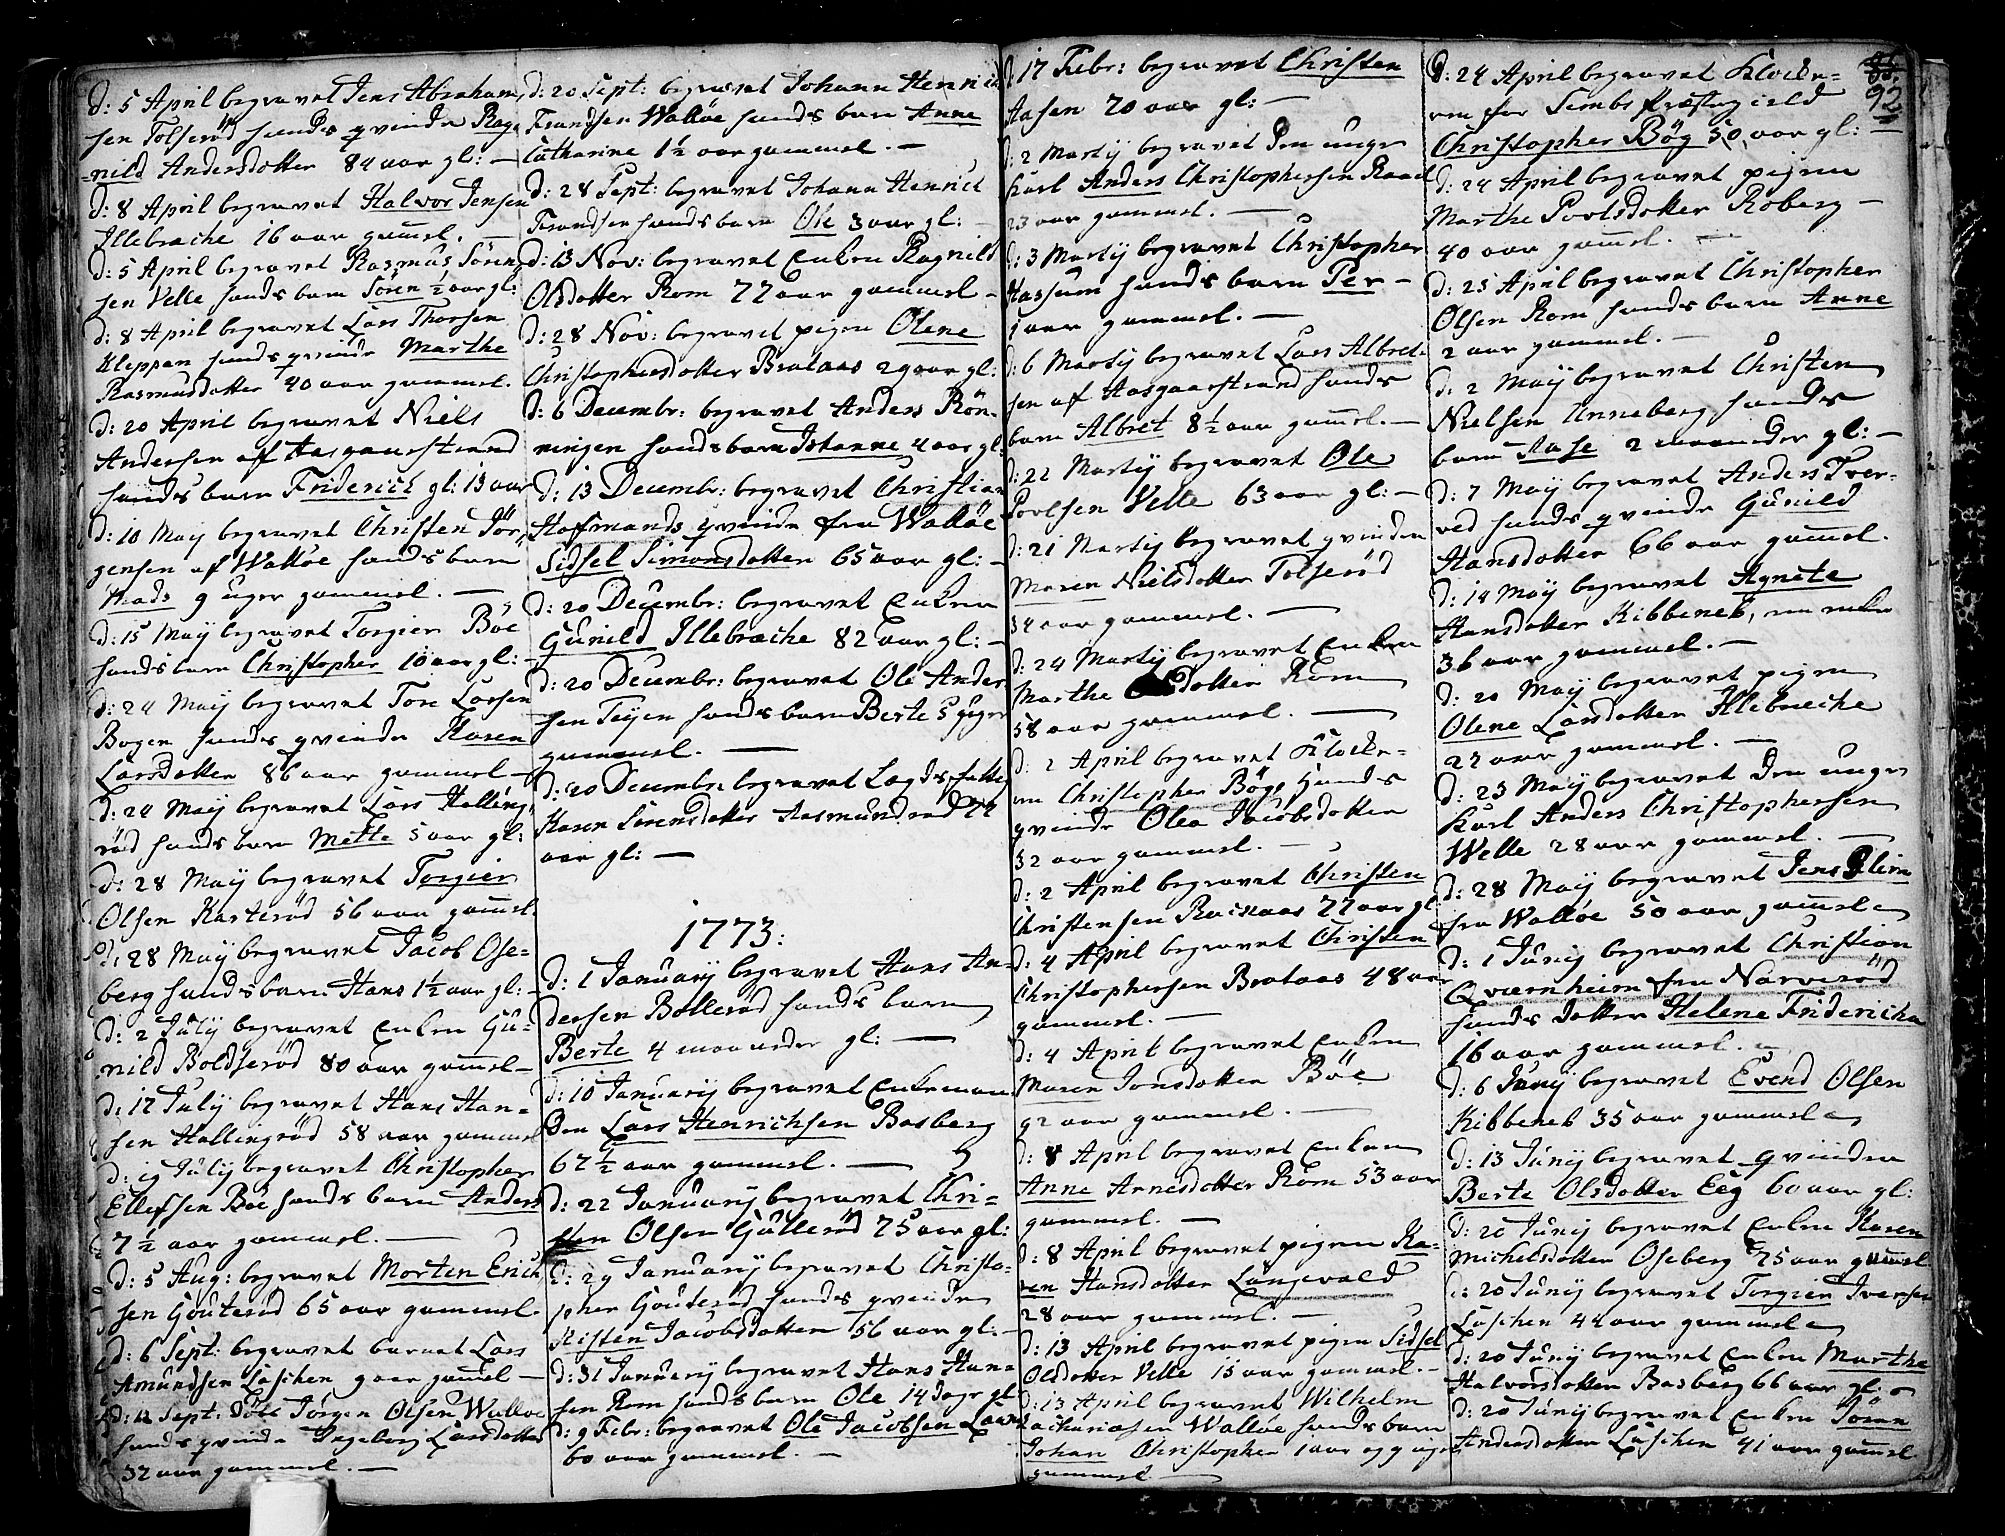 d: 5 April begravet Jens Abraham-
sen Tolserød hands qvinde Rag-
nild Andersdotter 84 aar gl: —
d: 8 April begravet Halvor Jensen
Illebræche 16 aar gamel. —
d: 5 April begravet Rasmus Sören-
sen Velle hands barn Sören ½ aar gl:
d: 8 April begravet Lars Thorsen
Kleppan hands qvinde Marthe
Rasmusdotter 40 aar gammel.
d: 20 April begravet Niels
Andersen af Aasgaarstrand
hands barn Friderich gl: 13 aar
d: 10 Maij begravet Christen Jör-
gensen af Walløe hands barn
Mads 9 uger gammel. —
d: 15 Maij begravet Torgier Böe
hands barn Christopher 10 aar gl: —
d: 24 Maij begravet Tore Larsen
Bogen hands qvinde Karen
Larsdotter 86 aar gammel —
d: 24 Maij begravet Lars Helling-
rød hands barn Mette 5 aar gl:
d: 28 Maij begravet Torgier
Olsen Karterød 56 aar gamel.
d: 28 Maij begravet Jacob Ose-
berg hands barn Hans 1½ aar gl: —
d: 2 Julij begravet Enken Gu-
nild Boldserød 80 aar gamel —
d: 17 Julij begravet Hans Han-
sen Hallingrød 58 aar gammel
d: 19 Julij begravet Christopher
Ellefsen Böe hands barn Anders
7½ aar gammel. —
d: 5 Aug: begravet Morten Erich-
sen Gouterød 65 aar gammel.
d: 6 Sept: begravet barnet Lars
Amundsen Laschen 9 aar gamel —
d: 12 Sept: Jørgen Olsen Walløe
hands qvinde Ingeborg Larsdotter
32 aar gammel. —
d: 20 Sept: begravet Johann Henrich
Frandsen Walløe hands barn Anne
Catharine 1½ aar gammel. —
d: 28 Sept: begravet Johann Henrich
Frandsen hands barn Ole 3 aar gl: —
d: 13 Nov: begravet Enken Ragnild
Olsdotter Rom 77 aar gammel —
d: 28 Nov: begravet pigen Olene
Christophersdotter Brataas 29 aar gl:
d: 6 Decembr: begravet Anders Rön-
ningen hands barn Johanne 4 aar gl:
d: 13 Decembr: begravet Christian
Hoffmands qvinde fra Walløe
Sidsel Simonsdotter 65 aar gl: —
d: 20 Decembr: begravet Enken
Gunild Illebræche 82 aar gl: —
d: 20 Decembr: begravet Ole Ander-
sen Teijen hands barn Berte 5 uger
gammel. —
d: 20 Decembr: begravet Lægdsfattig
Karen Sörensdotter Aasmundrød 77
aar gl: —
1773:
d: 1 Januarij begravet Hans An-
dersen Bollerød hands barn
Berte 4 maaneder gl: —
d: 10 Januarij begravet Enkeman-
den Lars Henrichsen Basberg
67½ aar gammel. —
d: 22 Januarij begravet Chri-
sten Olsen Gullerød 75 aar gl:
d: 29 Januarij begravet Christo-
pher Gouterød hands qvinde
Kisten Jacobsdotter 56 aar gl: —
d: 31 Januarij begravet Hans Han-
sen Rom hands barn Ole 14 dage gl:
d: 9 Febr: begravet Ole Jacobsen
60 aar gammel. —
d: 17 Febr: begravet Christen
Aasen 70 aar gl: —
d: 2 Martij begravet den unge
karl Anders Christophersen Raael
23 aar gammel. —
d: 3 Martij begravet Christopher
Hassum hands barn Per —
1 aar gammel. —
d: 6 Martij begravet Lars Albret-
sen af Aasgaarstrand hands
barn Albret 8½ aar gamel. —
d: 22 Martij begravet Ole
Poelsen Velle 63 aar gl: —
d: 21 Martij begravet qvinden
Maren Nielsdotter Tolserød
34 aar gammel. —
d: 24 Martij begravet Enken
Marthe Olsdotter Rom
58 aar gammel. —
d: 2 April begravet Klocke-
ren Christopher Bögs hands
qvinde Olea Jacobsdotter
32 aar gammel. —
d: 2 April begravet Christen
Christensen Rackaas 77 aar gl:
d: 4 April begravet Christen
Christophersen Brataas 48 aar
gammel. —
d: 4 April begravet Enken
Maren Jonsdotter Böe
92 aar gammel. —
d: 8 April begravet Enken
Anne Arnesdotter Rom 53 aar
gammel. —
d: 8 April begravet pigen Ka-
ren Hansdotter Langevald
28 aar gammel. —
d: 13 April begravet pigen Sidsel
Olsdotter Velle 15 aar gammel. —
d: 13 April begravet Wilhelm
Zachariasen Walløe hands barn
Johan Christopher 1 aar og 9 uger
gammel —
92
d: 24 April begravet Klocke-
ren for Sembs præstegield
Christopher Bög 50 aar gl: —
d: 24 April begravet pigen
Marthe Povlsdotter Roberg —
40 aar gamel. —
d: 25 April begravet Christopher
Olsen Rom hands barn Anne
2 aar gammel. —
d: 2 Maij begravet Christen
Nielsen Unneberg hands
barn Aase 2 maaneder gl: —
d: 7 Maij begravet Anders Tver-
ved hands qvinde Gunild
Hansdotter 66 aar gammel.
d: 14 Maij begravet Agnete
Hansdotter Kibbeneb, en enke
36 aar gammel. —
d: 20 Maij begravet pigen
Olene Larsdotter Illebræche
22 aar gammel. —
d: 23 Maij begravet den unge
karl Anders Christophersen
Welle 28 aar gammel. —
d: 28 Maij begravet Jens Blim
fra Walløe 50 aar gamel
d: 1 Junij begravet Christian
Qværnheim fra Narverød
hands dotter Helene Fridericha
16 aar gammel.
d: 6 Junij begravet Evend Olsen
Kibbeneb 35 aar gammel
d: 13 Junij begravet qvinden
Berte Olsdotter Eeg 60 aar gl:
d: 20 Junij begravet Enken Karen
Michelsdotter Oseberg 75 aar gamel
d: 20 Junij begravet Torgier Iversen
Laschen 44 aar gammel
d: 20 Junij begravet Enken Marthe
Halvorsdotter Basberg 66 aar gl:
d: 20 Junij begravet Enken Sören
Andersdotter Laschen 41 aar gamel